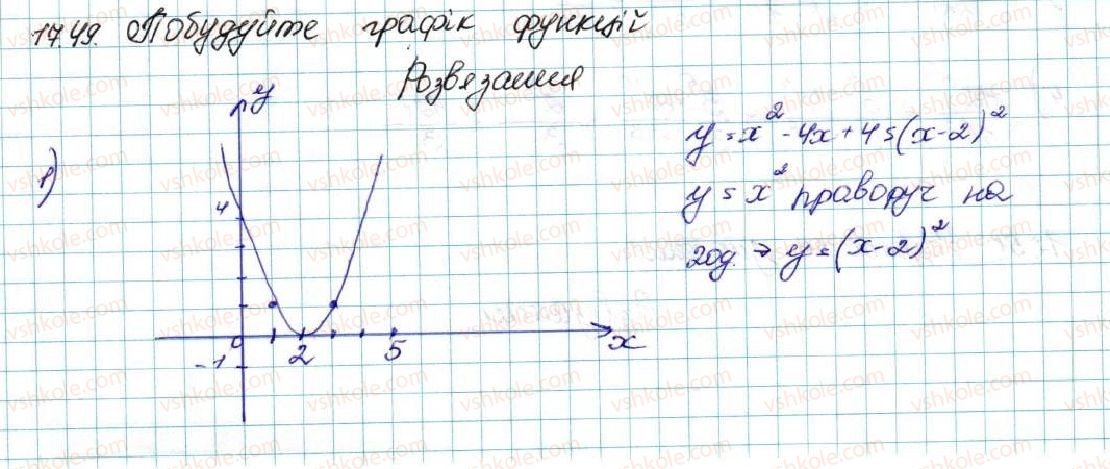 17.49. Побудуйте графік функцій
Розвязання
1)
y
4
0
-1
2
5
x
y = x² - 4x + 4 = (x-2)²
y = x² праворуч на
2од. → y = (x-2)²
vshkole.com